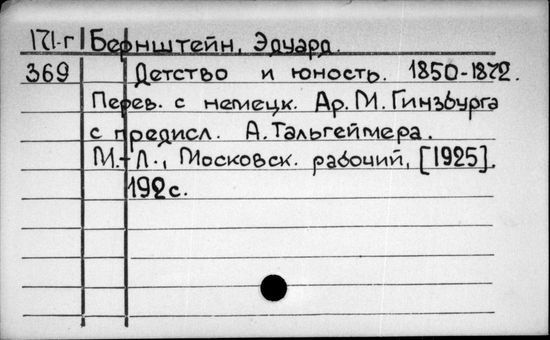 171-г Бернштейн, Эдуард.
369 Детство и юность. 1850-1872.
Перев. с немецк. Ар. М. Гинзбурга
с предисл. А. Тальгеймера.
М.-Л., Московск. рабочий, [1925].
192 с.